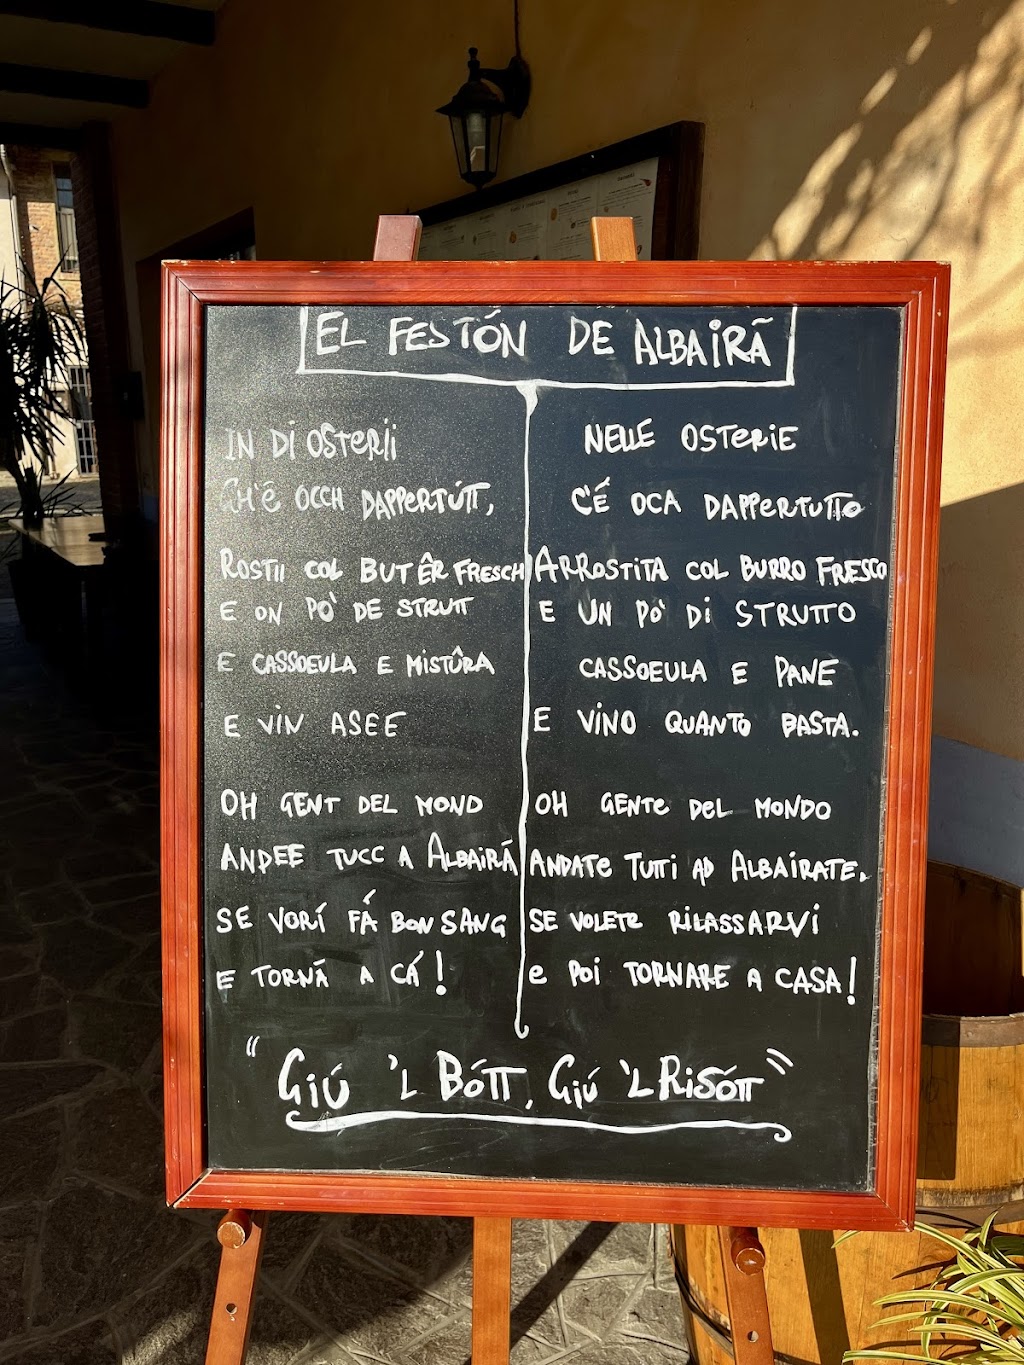 EL FESTÓN DE ALBAIRÃ
IN DI OSTERII
CH'É OCCH DAPPERTÚTT,
ROSTII COL BUTÊR FRESCH
E ON PO' DE STRUTT
E CASSOEULA E MISTÛRA
E VIN ASEE
OH GENT DEL MOND
ANDEE TUCC A ALBAIRÁ
SE VORÍ FÁ BON SANG
E TORNÃ A CÁ!
NELLE OSTERIE
C'É OCA DAPPERTUTTO
ARROSTITA COL BURRO FRESCO
E UN PO' DI STRUTTO
CASSOEULA E PANE
E VINO QUANTO BASTA.
OH GENTE DEL MONDO
ANDATE TUTTI AD ALBAIRATE,
SE VOLETE RILASSARVI
e POI TORNARE A CASA!
"GIÚ 'L BÓTT, GIÚ 'L RISÓTT"